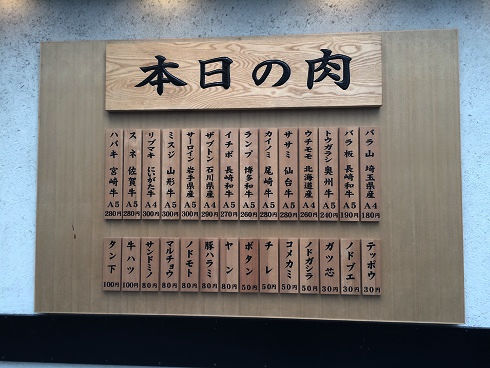 本日の肉
バラ山 埼玉県産 A4 180円
バラ板 長崎和牛 A5 190円
トウガラシ 奥州牛 A5 240円
ウチモモ 北海道産 A4 260円
ササミ 仙台牛 A5 280円
カイノミ 尾崎牛 A5 280円
ランプ 博多和牛 A5 260円
イチボ 長崎和牛 A5 270円
ザブトン 石川県産 A4 290円
サーロイン 岩手県産 A4 300円
ミスジ 山形牛 A5 300円
リブマキ にいがた牛 A4 300円
スネ 佐賀牛 A5 280円
ハバキ 宮崎牛 A5 280円
テッポウ 30円
ノドブエ 30円
ガツ芯 30円
ノドガシラ 50円
コメカミ 50円
チレ 50円
ボタン 50円
ヤン 80円
豚ハラミ 80円
ノドモト 80円
マルチョウ 80円
サンドミノ 80円
牛ハツ 100円
タン下 100円